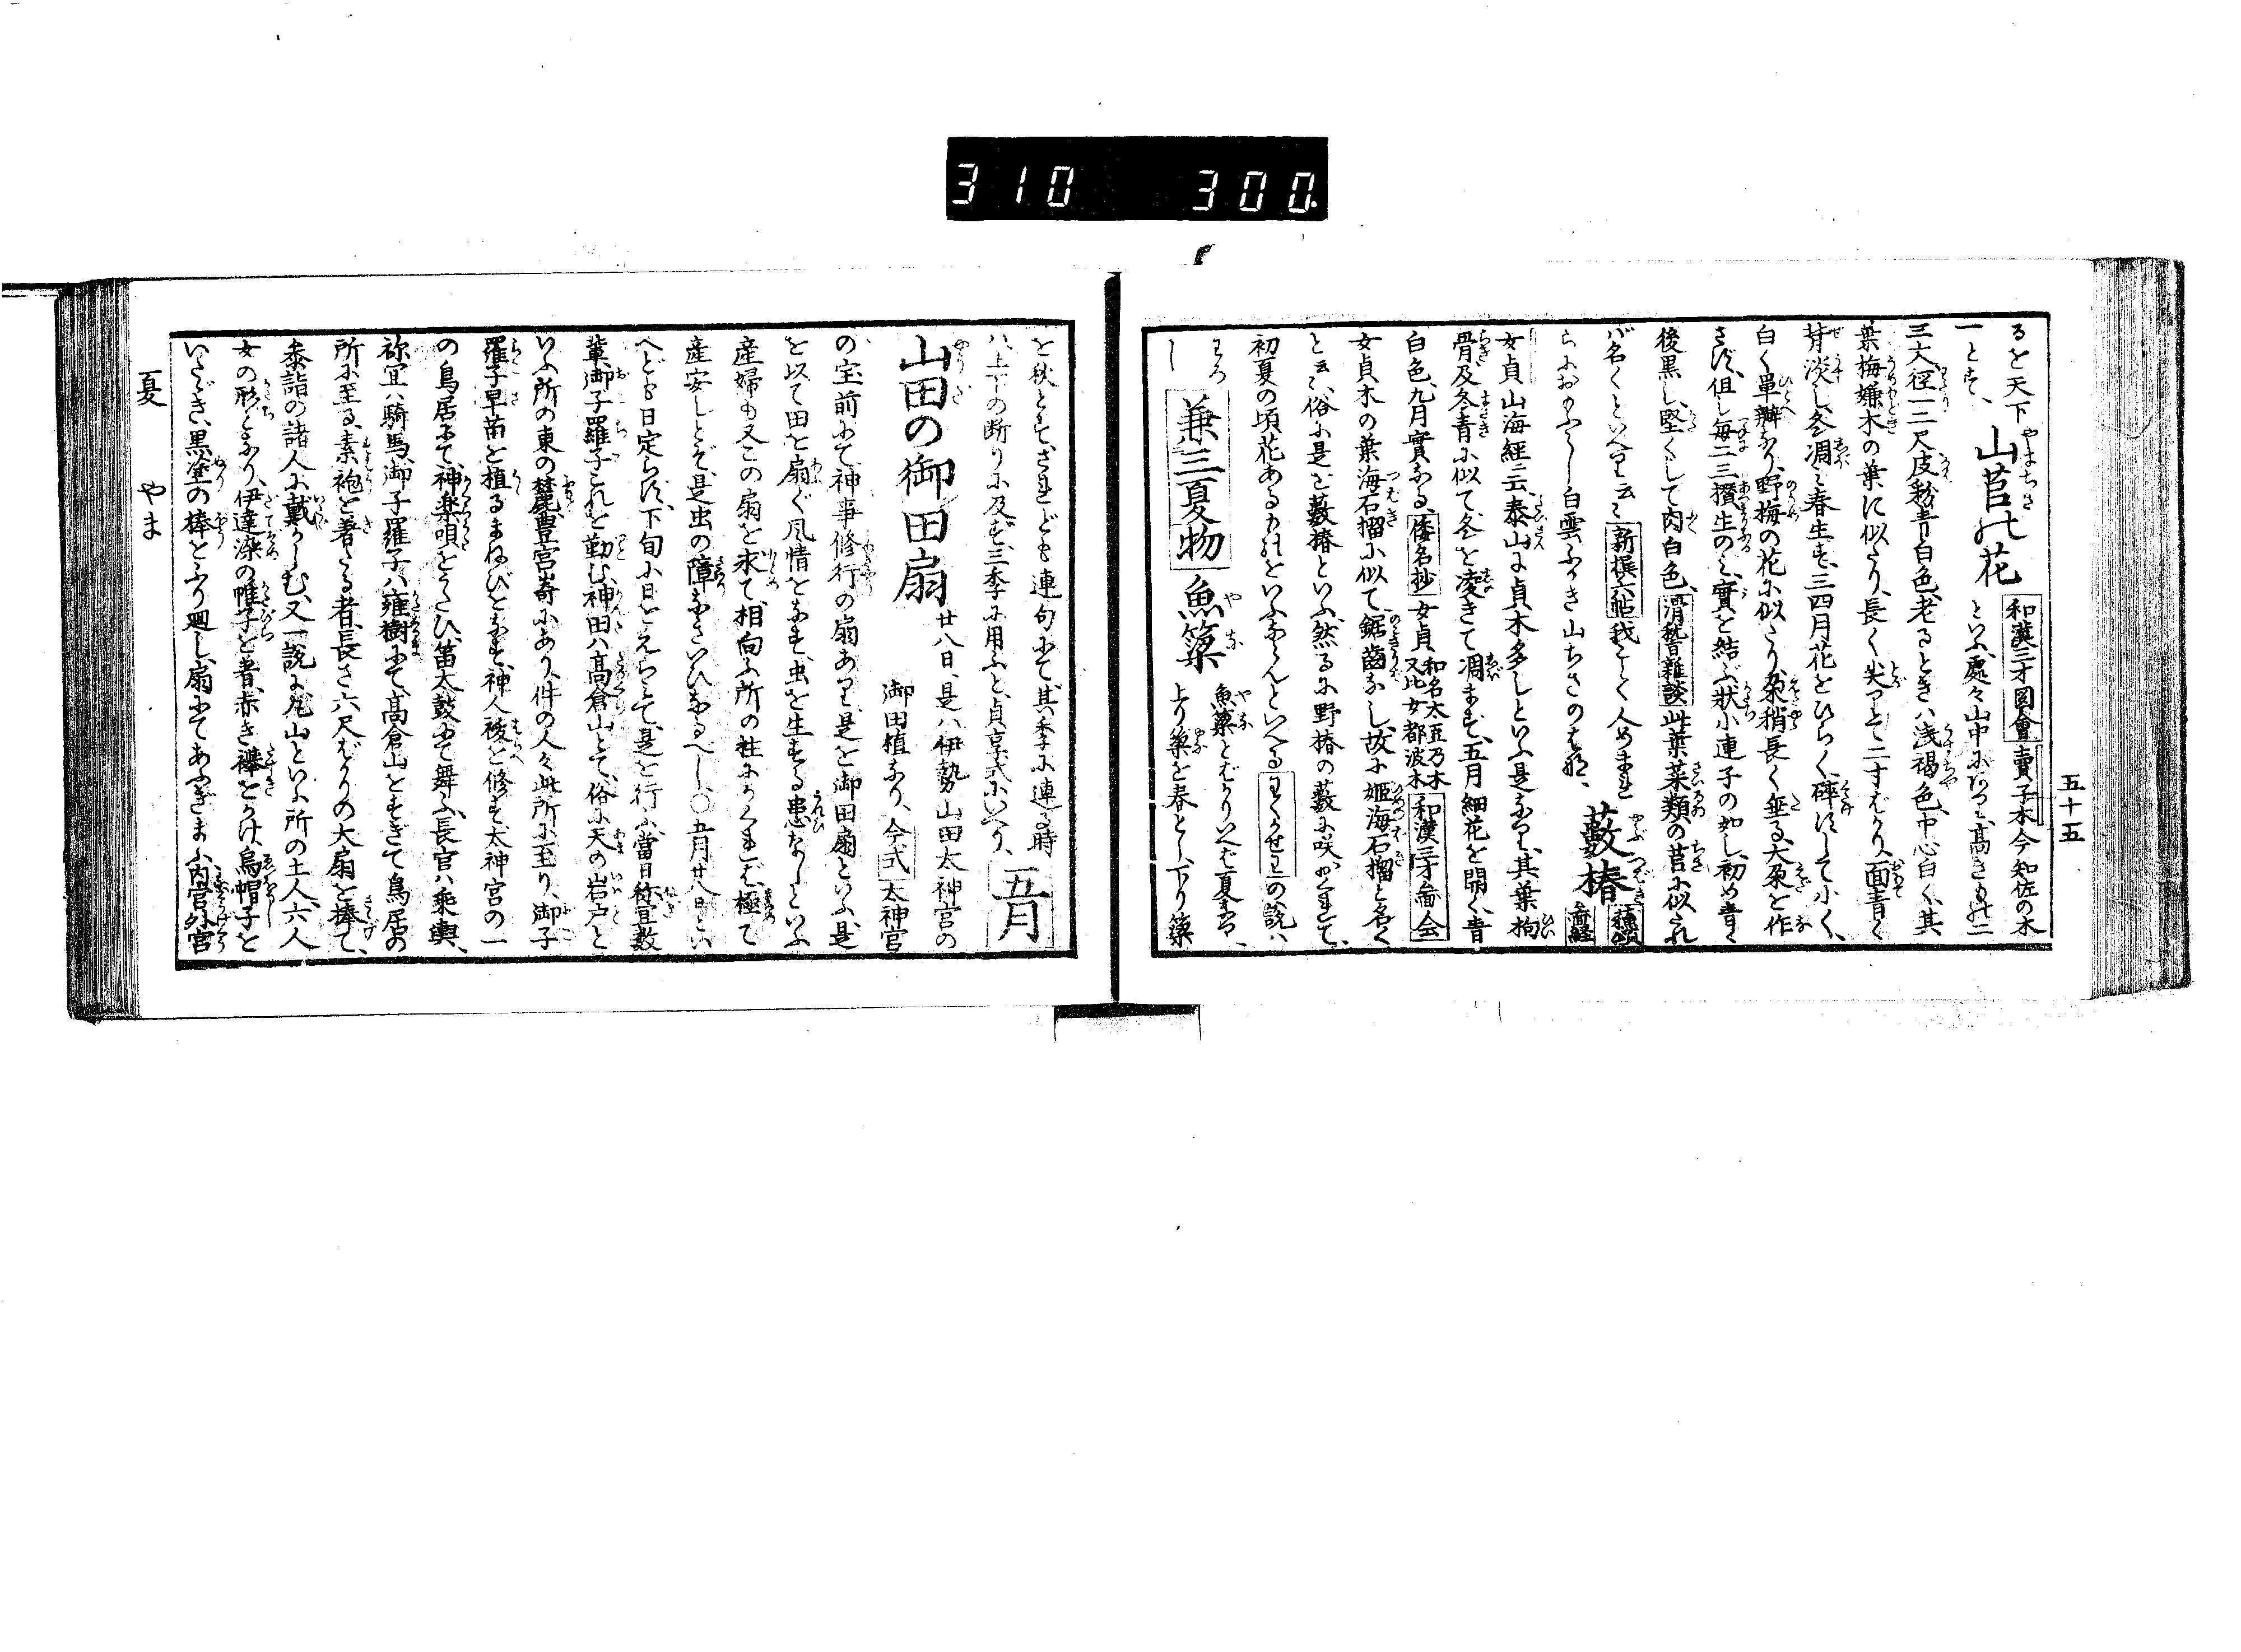 310 300.
五十五
るを天下
一とす、
山苣の花
和漢三才圖會 賣子木今知佐の木
といふ處々山中にあり、高きもの二
三丈、徑一二尺、皮粉青白色、老るときハ浅褐色、中心白く、其
葉梅嫌木の葉に似たり、長く尖りて二寸ばかり、面青く
背淡し、冬凋ミ春生ず、三四月花をひらく、碎にして小く、
白く單瓣なり、野梅の花に似たり、朶稍長く垂る、大朶を作
さず、但し毎二三攅生のミ、實を結ぶ狀小連子の如し、初め青く
後黒し、堅くして肉白色、滑稽雑談 此葉菜類の苣に似たれ
バ名くといへりと云々 新撰六帖 我ごとく人めまれ
らにおもふらし白雲ふかき山ちさのはな、
藪椿
女貞 山海經云、泰山に貞木多しといふ是なり、其葉枸
骨及冬青に似て、冬を凌ぎて凋まず、五月細花を開く、青
白色、九月實なる、倭名抄 女貞 和名太豆乃木 又比女都波木 和漢三才圖会
女貞木の葉海石榴に似て鋸齒なし、故に姫海石榴と名く
と云、俗に是を藪椿といふ、然るに野椿の藪に咲おくれて、
初夏の頃花あるものをいふならんといへる の説ハ
わろ
し
兼三夏物
魚簗
魚簗とばかりいへば夏なり、
上り簗を春とし、下り簗
を秋とす、されども連句にて、其季に連る時
ハ、上下の断りに及ばず、三季に用ふと、貞享式にいへり、
五月
山田の御田扇
廿八日、是ハ伊勢山田太神宮の
御田植なり、今式 太神宮
の宝前にて、神事修行の扇あり、是を御田扇といふ、是
を以て田を扇ぐ風情をなす、虫を生ずる患なしといふ
産婦も又この扇を求て、相向ふ所の柱にかくれば、極て
産安しとぞ、是虫の障なきいひなるべし、〇五月廿八日とい
へども日定らず、下旬に日をえらミて、是を行ふ、當日祢宜数
輩、御子羅子これを勤む、神田ハ高倉山とて、俗に天の岩戸と
いふ所の東の麓、豊宮嵜にあり、件の人々此所に至り、御子
羅子早苗を植るまねびをなす、神人祓を修す、太神宮の一
の鳥居にて、神楽唄をうたひ、笛太鼓にて舞ふ、長官ハ乘輿、
祢冝ハ騎馬、御子羅子ハ雍樹にて、高倉山をすぎて鳥居の
所に至る、素袍を着たる者、長さ六尺ばかりの大扇を捧て、
参詣の諸人に戴かしむ、又一説に尾山といふ所の土人六人
女の形となり、伊達染の帷子を着、赤き襷をかけ、烏帽子を
いたゞき、黒塗の棒をふり廻し、扇にてあふぎまふ、内宮外宮
夏 やま